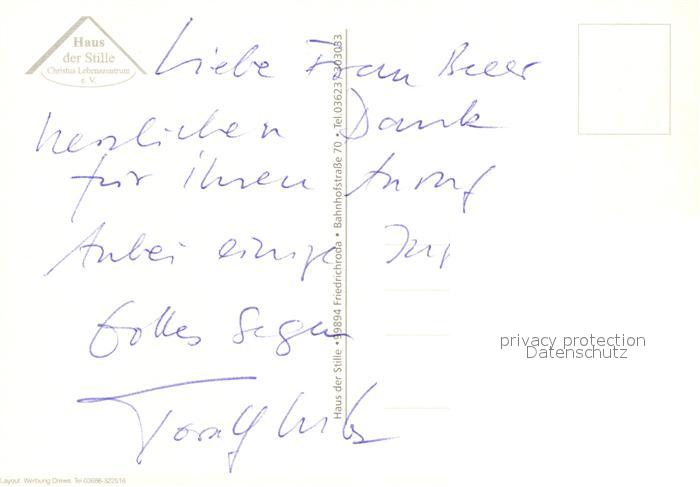 Haus
der Stille
Christus Lebenszentrum
e. V.
Liebe Frau Beer
herzlichen Dank
für ihren Anruf
Anbei einige
Gottes Segen
Haus der Stille • 99894 Friedrichroda • Bahnhofstraße 70 • Tel.036237-303033
privacy protection
Datenschutz
Layout Werbung Drews, Tel 03686-322516